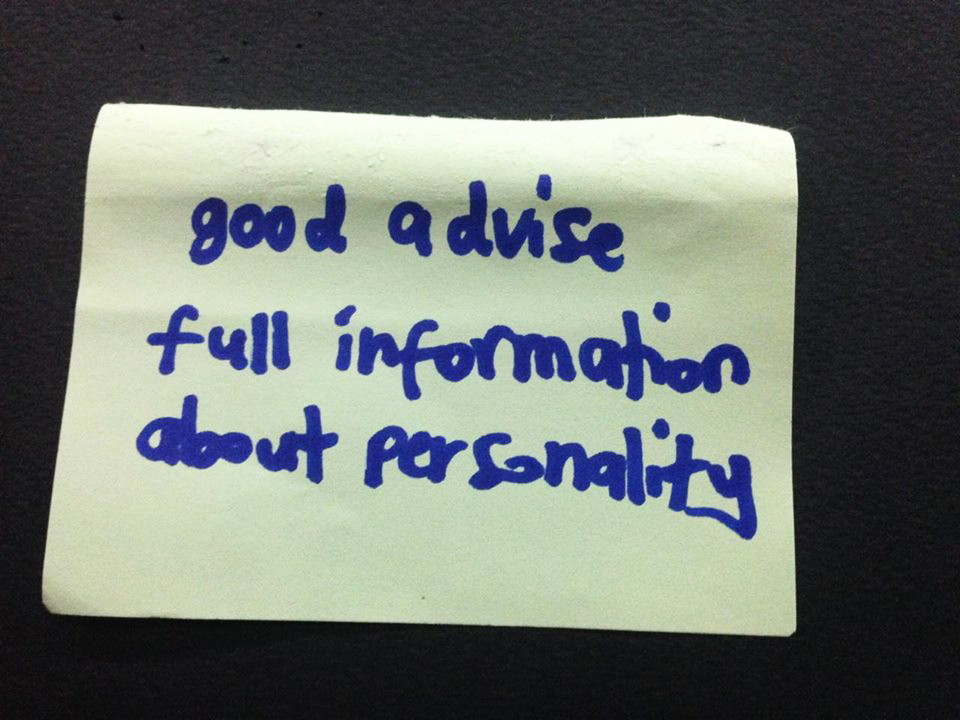 good advise
full information
about personality